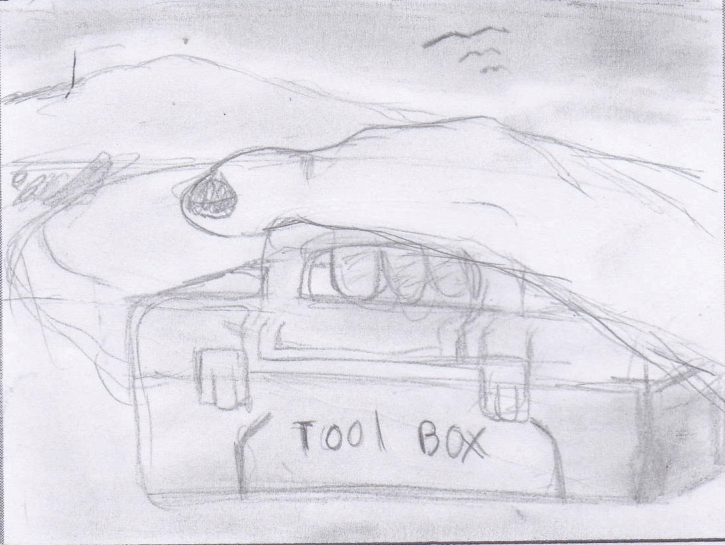 TOOl BOX